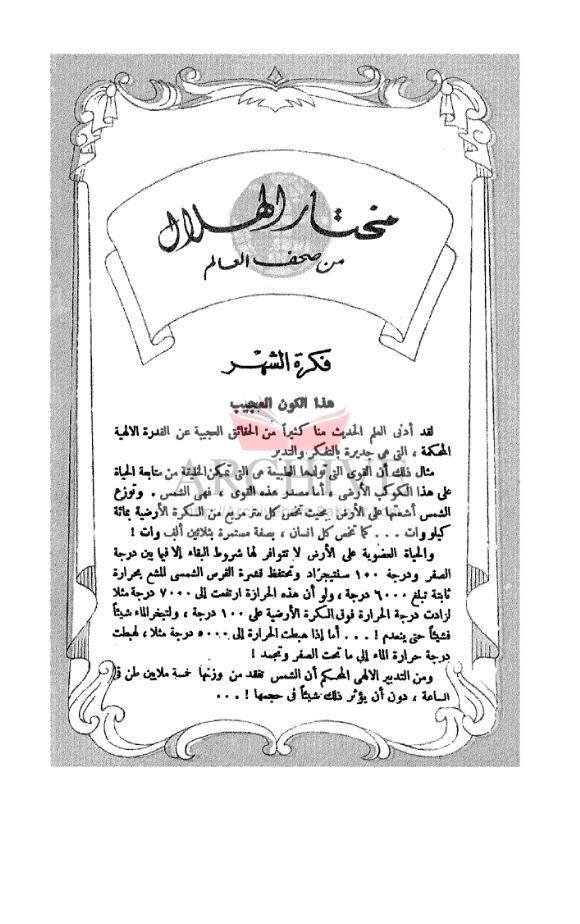 مختار الهلال
من صحف العالم
فكرة الشهر
هذا الكون العجيب
لقد أدنى العلم الحديث منا كثيراً من الحقائق العجيبة عن القدرة الالهية
المحكمة ، التى هى جديرة بالتفكر والتدبر
مثال ذلك أن القوى التى تولدها الطبيعة هى التى تمكن الخليقة من متابعة الحياة
على هذا الكوكب الأرضى ، أما مصدر هذه القوى ، فهى الشمس . وتوزع
الشمس أشعتها على الأرض بحيث تخص كل متر مربع من الكرة الأرضية بمائة
كيلو وات . . . كما تخص كل انسان ، بصفة مستمرة بثلاثين ألف وات !
والحياة العضوية على الأرض لا تتوافر لها شروط البقاء إلا فيما بين درجة
الصفر ودرجة ١٠٠ سنتيجراد وتحتفظ قشرة القرص الشمسى للمشع بحرارة
ثابتة تبلغ ٦٠٠٠ درجة ، ولو أن هذه الحرارة ارتفعت إلى ٧٠٠٠ درجة مثلا
لزادت درجة الحرارة فوق الكرة الأرضية على ١٠٠ درجة ، ولتبخر الماء شيئاً
فشيئاً حتى ينعدم ! . . . أما إذا هبطت الحرارة إلى ٥٠٠٠ درجة مثلا ، لهبطت
درجة حرارة الماء إلى ما تحت الصفر وتجمد !
ومن التدبير الالهى المحكم أن الشمس تفقد من وزنها خمسة ملايين طن فى
الساعة ، دون أن يؤثر ذلك شيئاً فى حجمها ! . . .
ARCHIVE